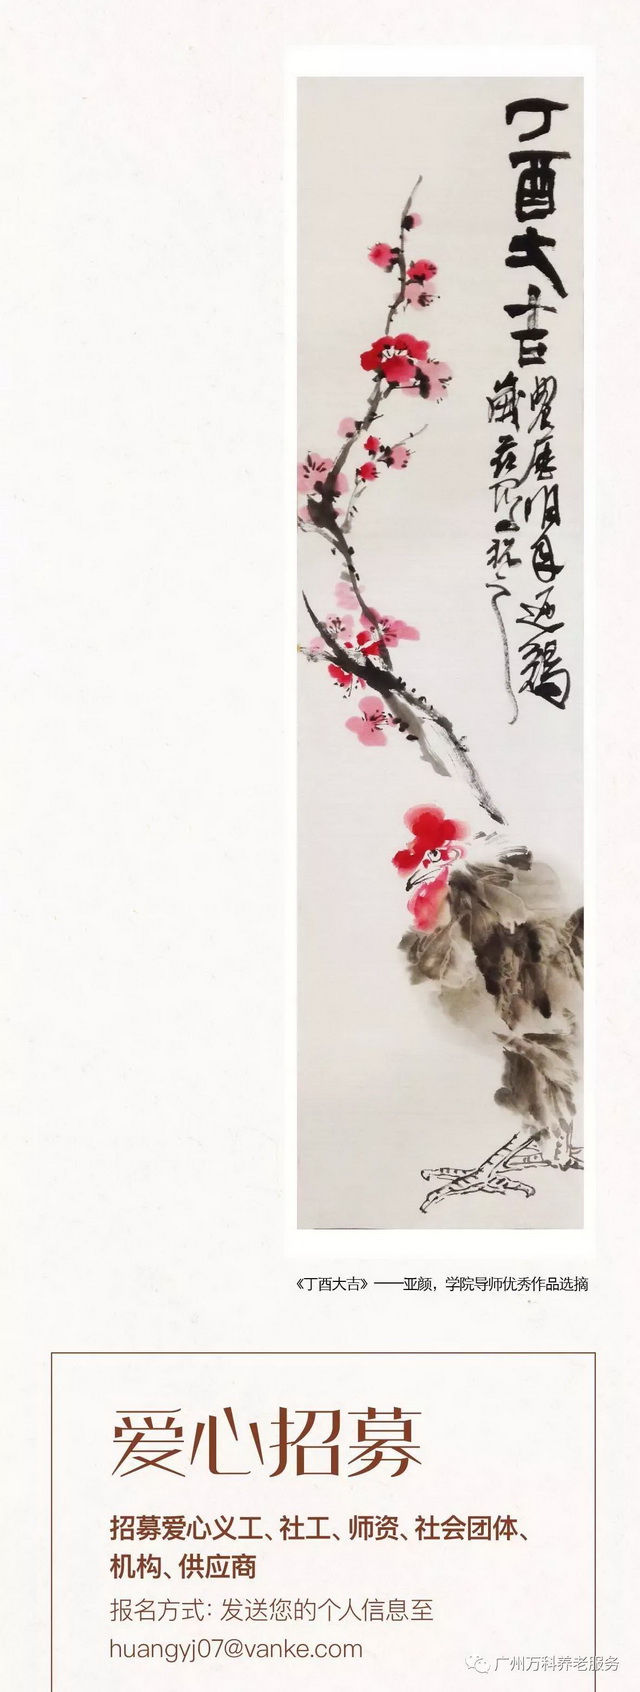 丁酉大吉
《丁酉大吉》——亚颜，学院导师优秀作品选摘
爱心招募
招募爱心义工、社工、师资、社会团体、
机构、供应商
报名方式：发送您的个人信息至
huangyj07@vanke.com
广州万科养老服务